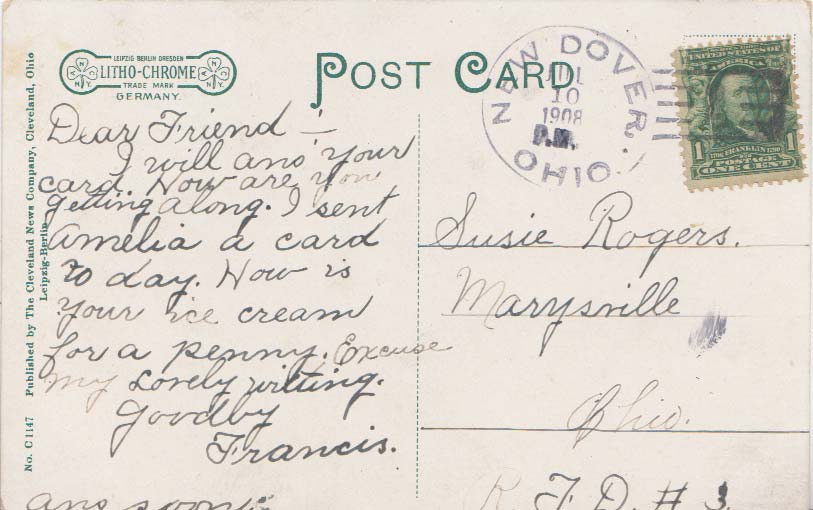 LEIPZIG BERLIN DRESDEN
LITHO-CHROME
TRADE MARK
GERMANY.
POST CARD
NEW DOVER,
JUL
10
1908
P.M.
OHIO.
UNITED STATES OF
AMERICA
1 1
1706 FRANKLIN 1790
POSTAGE
ONE CENT
Dear Friend -
I will ans your
card. How are you
getting along. I sent
Amelia a card
to day. How is
your ice cream
for a penny. Excuse
my lovely writing.
Goodby
Francis.
ans soon.
Susie Rogers.
Marysville
Ohio.
R. F. D. # 3.
No. C 1147 Published by The Cleveland News Company, Cleveland, Ohio
Leipzig-Berlin